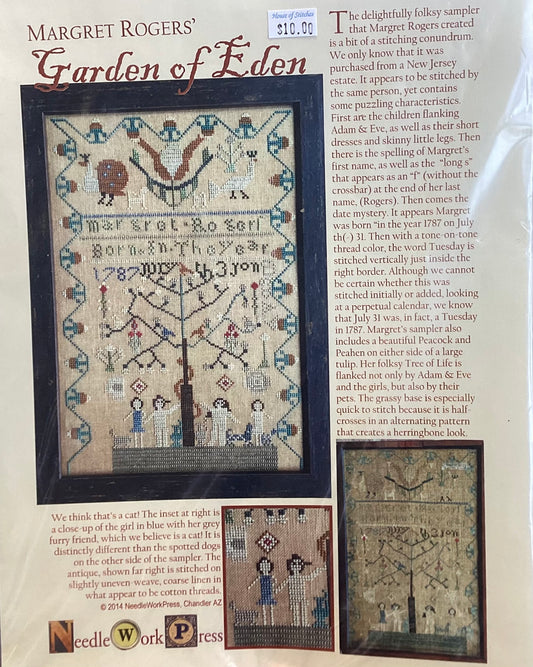 MARGRET ROGERS'
Garden of Eden
House of Stitches
$10.00
The delightfully folksy sampler
that Margret Rogers created
is a bit of a stitching conundrum.
We only know that it was
purchased from a New Jersey
estate. It appears to be stitched by
the same person, yet contains
some puzzling characteristics.
First are the children flanking
Adam & Eve, as well as their short
dresses and skinny little legs. Then
there is the spelling of Margret's
first name, as well as the "long s"
that appears as an "f" (without the
crossbar) at the end of her last
name, (Rogers). Then comes the
date mystery. It appears Margret
was born "in the year 1787 on July
th(-) 31. Then with a tone-on-tone
thread color, the word Tuesday is
stitched vertically just inside the
right border. Although we cannot
be certain whether this was
stitched initially or added, looking
at a perpetual calendar, we know
that July 31 was, in fact, a Tuesday
in 1787. Margret's sampler also
includes a beautiful Peacock and
Peahen on either side of a large
tulip. Her folksy Tree of Life is
flanked not only by Adam & Eve
and the girls, but also by their
pets. The grassy base is especially
quick to stitch because it is half-
crosses in an alternating pattern
that creates a herringbone look.
margret Rogerſ
Born in The year
1787
We think that's a cat! The inset at right is
a close-up of the girl in blue with her grey
furry friend, which we believe is a cat! It is
distinctly different than the spotted dogs
on the other side of the sampler. The
antique, shown far right is stitched on
slightly uneven-weave, coarse linen in
what appear to be cotton threads.
© 2014 NeedleWorkPress, Chandler AZ
NeedleWorkPress